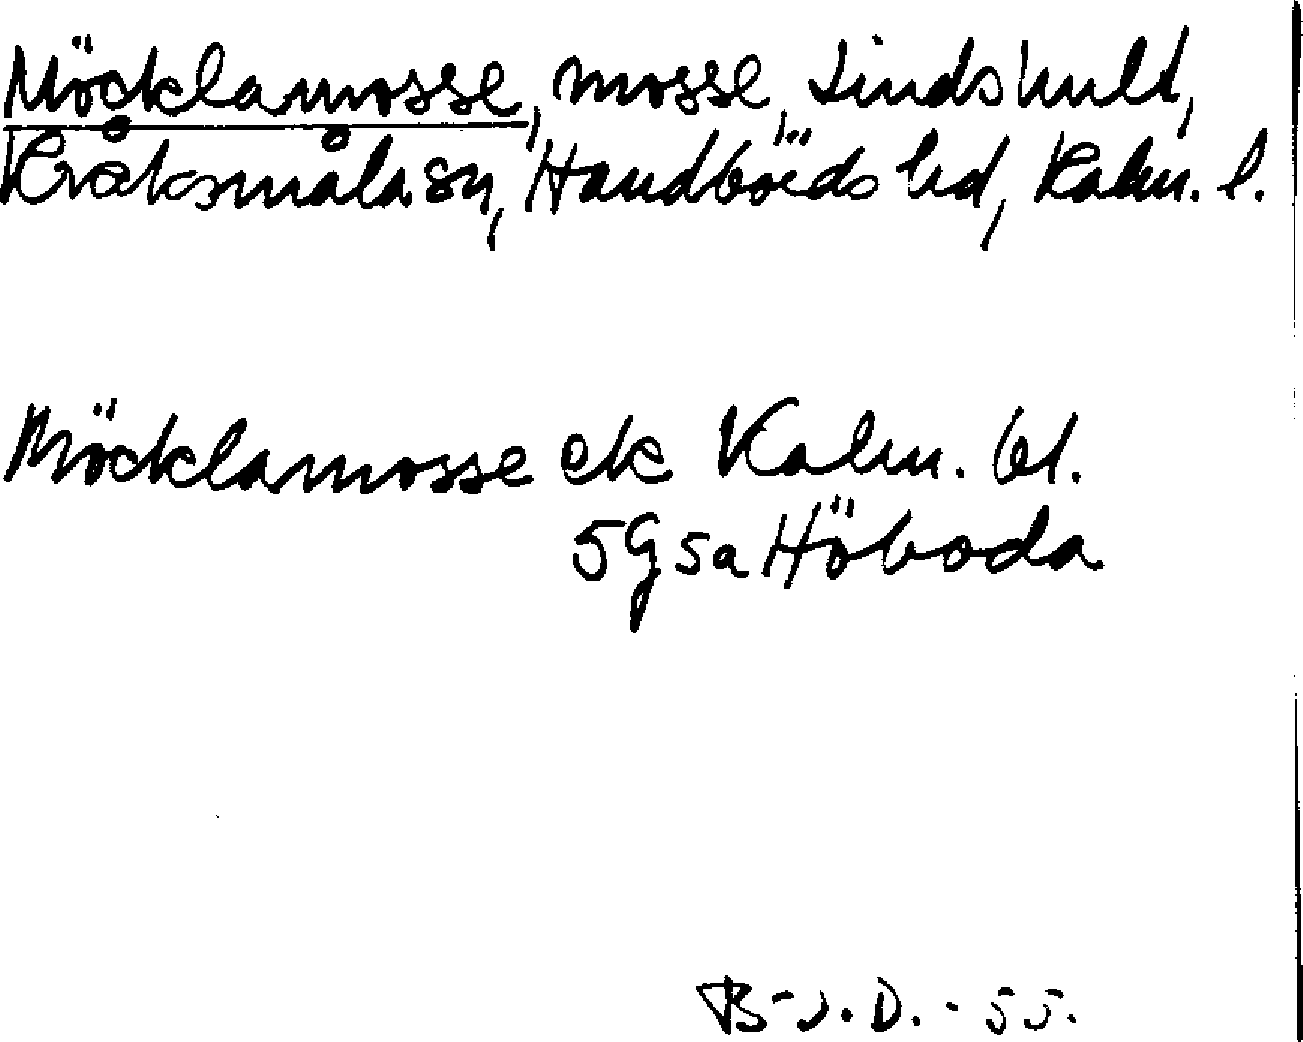 Möcklamosse, mosse, Lindshult,
Kråksmåla sn, Handbörds hd, Kalm. l.
Möcklamosse ek Kalm. bl.
5G5a Höboda
B-J.D.-55.